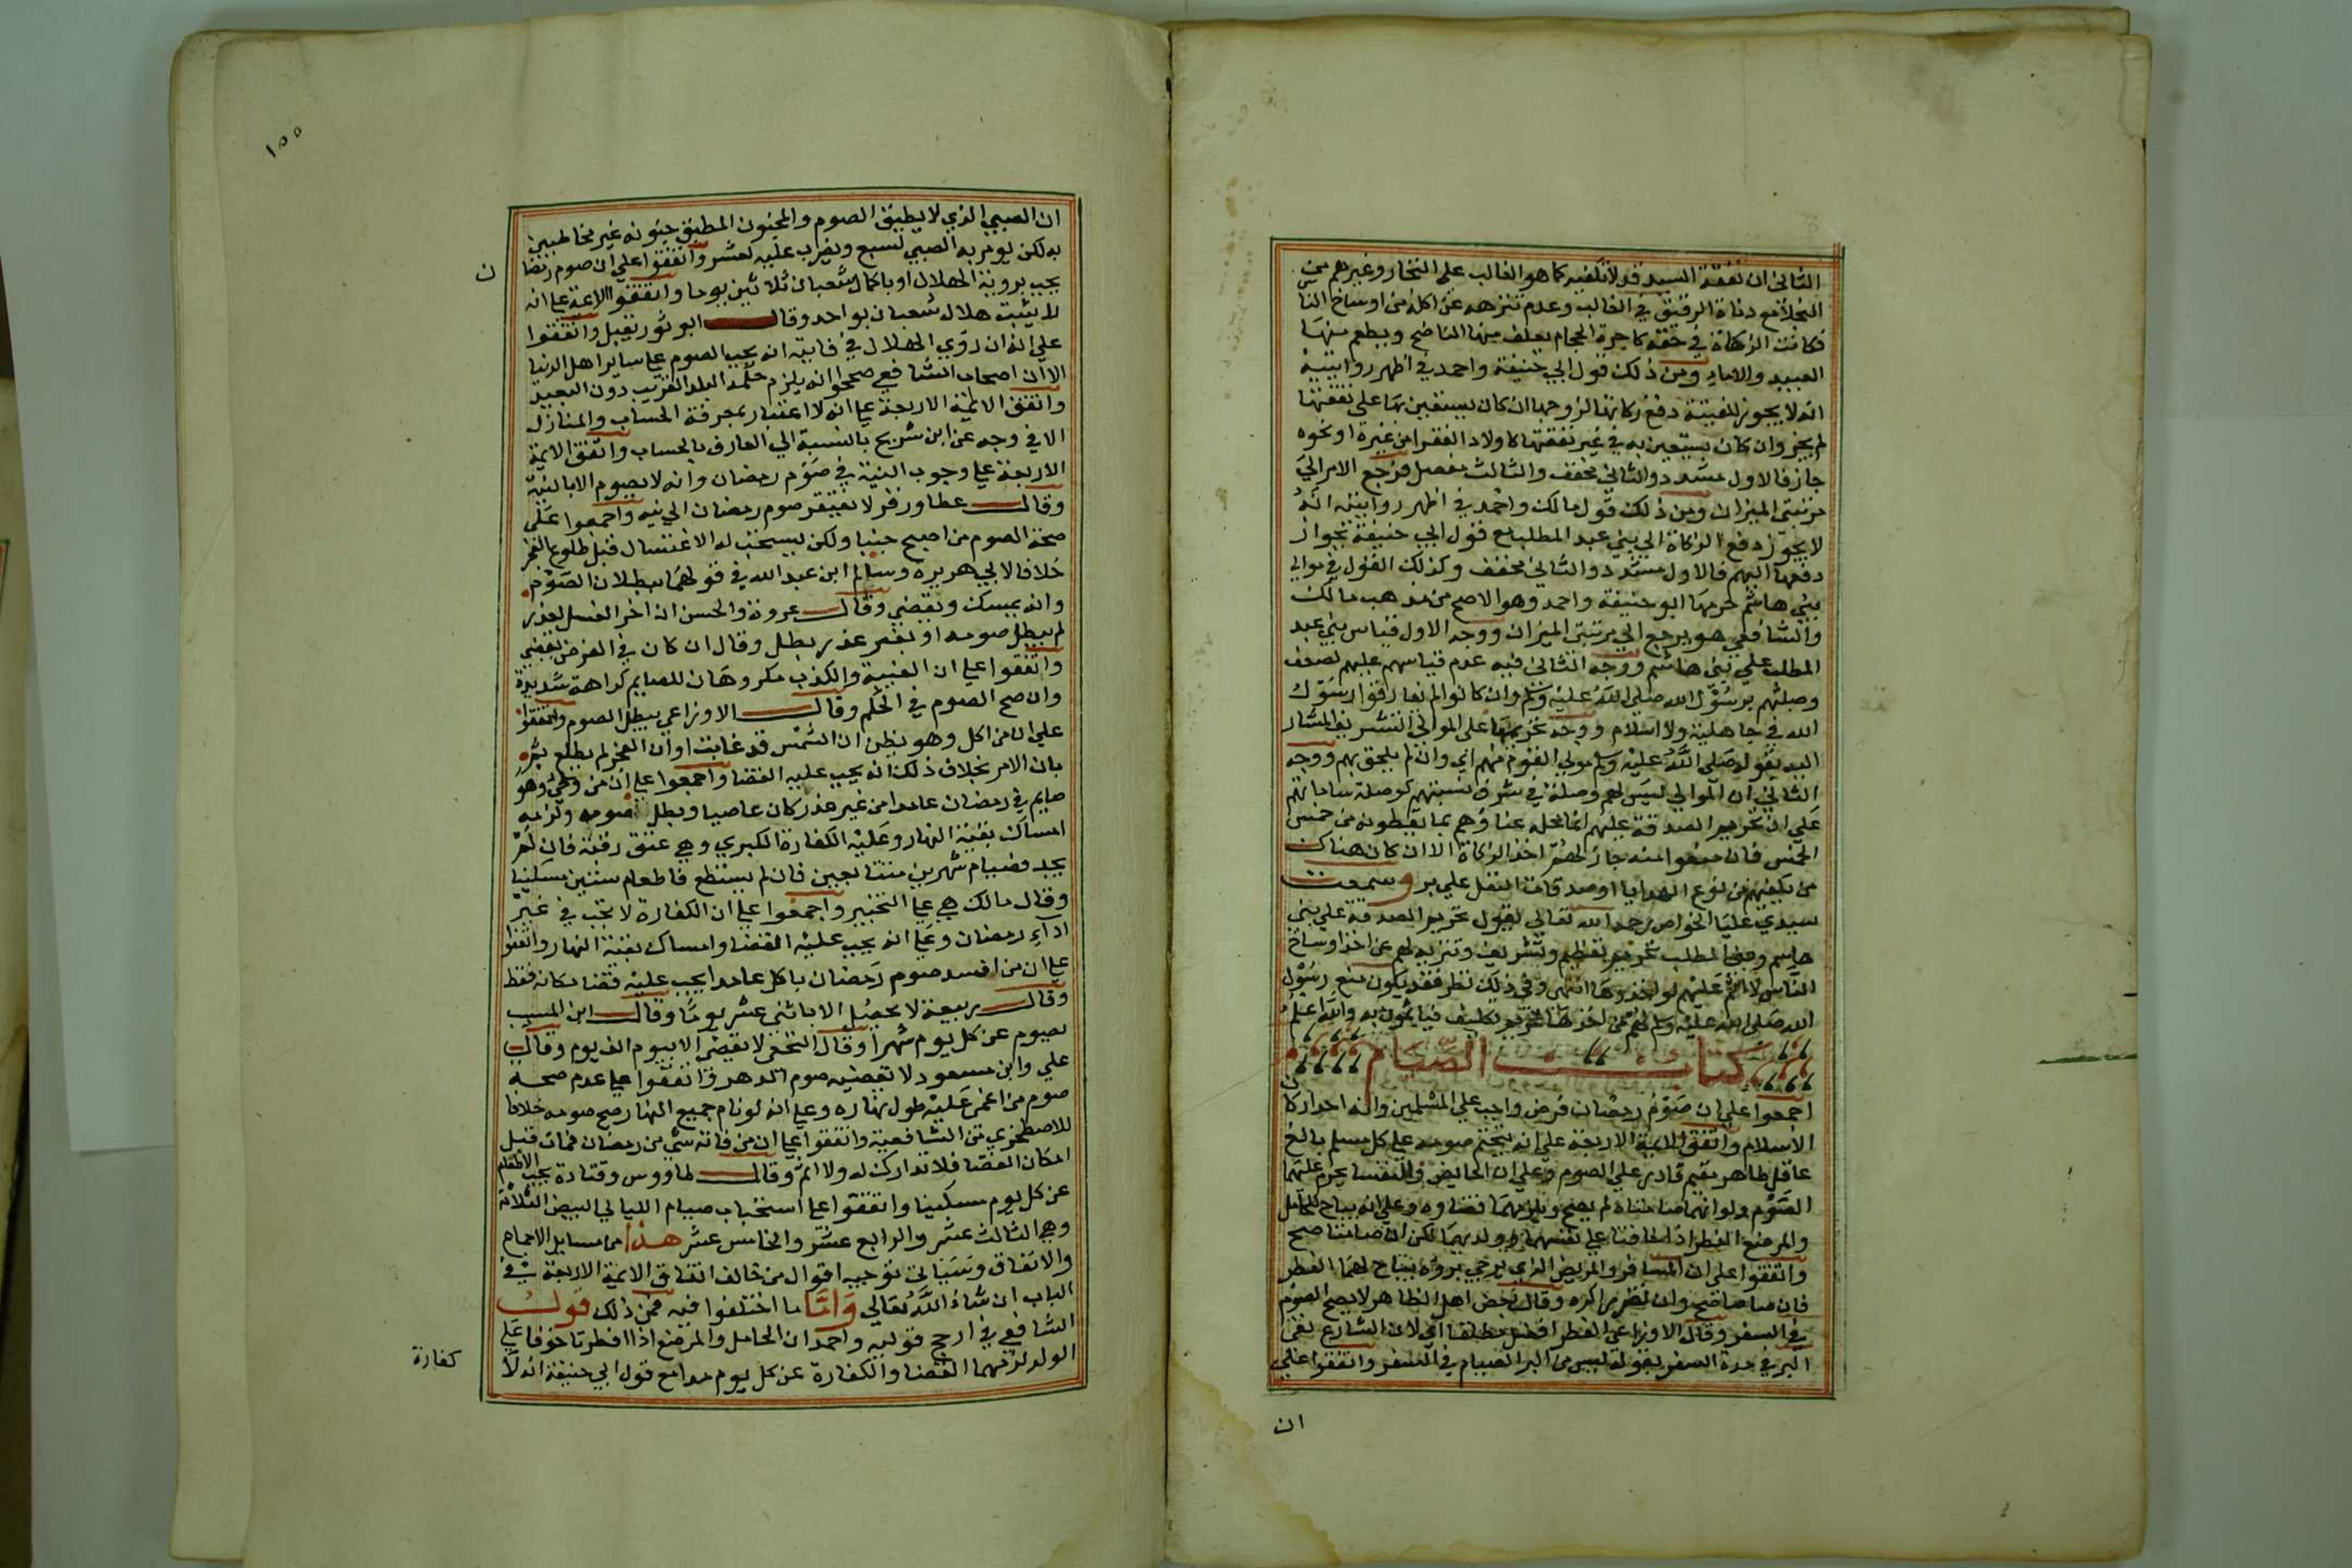 الثاني ان نفقة السيد قد لا تكفيه كما هو الغالب على التجار وغيرهم من
البخلا مع دناة الرقيق في الغالب وعدم تنزهه عن اكله من اوساخ النا
فكانت الزكاة في حقه كاجرة الحجام يعلف منها الناضح ويطعم منها
العبيد والاماء ومن ذلك قول ابي حنيفة واحمد في اظهر روايتيه
انه لا يجوز للغنية دفع زكاتها لزوجها ان كان يستعين بها على نفقتها
لم يجز وان كان يستعين به في غير نفقتها كاولاد الفقرا من غيرة او نحوه
جاز فالاول مشدد والثاني مخفف والثالث مفصل فرجع الامر الي
مرتبتي الميزان ومن ذلك قول مالك واحمد في اظهر روايتيه انه
لا يجوز دفع الزكاة الي بني عبد المطلب مع قول ابي حنيفة بجواز
دفعها اليهم فالاول مشدد والثاني مخفف وكذلك القول في موالي
بني هاشم حرمها ابو حنيفة واحمد وهو الاصح من مذهب مالك
والشافعي هو يرجع الي مرتبتي الميزان ووجه الاول قياس بني عبد
المطلب علي بني هاشم ووجه الثاني فيه عدم قياسهم عليهم لضعف
وصلتهم برسول الله صلي الله عليه وسلم وان كانوا لم يفارقوا رسول
الله في جاهلية ولا اسلام ووجه تحريمها على الموالي التشريف المشار
اليه بقوله صلي الله عليه وسلم مولي القوم منهم اي وان لم يلحق بهم ووجه
الثاني ان الموالي ليس لهم وصلة في شرف نسبتهم كوصلة ساداتهم
على ان تحريم الصدقة عليهم انما محله عناؤهم بما يعطونه من خمس
الخمس فان منعوا منه جاز لهم اخذ الزكاة الا ان كان هناك
من يكفيهم من نوع الهدايا او صدقات النفل علي بر وسمعت
سيدي عليا الخواص رحمه الله تعالي يقول تحريم الصدقة علي بني
هاشم وبني المطلب تحريم تعظيم وتشريف وتنزيه لهم عن اخذ اوساخ
الناس لا اثم عليهم لو اخذوها انتهى وفي ذلك نظر فقد يكون منع رسول
الله صلي الله عليه وسلم لهم من اخذها تحريم تكليف فياثمون به والله اعلم
كتاب الصيام
اجمعوا علي ان صوم رمضان فرض واجب علي المسلمين وانه احد اركان
الاسلام واتفق الايمة الاربعة على انه يتحتم صومه على كل مسلم بالغ
عاقل طاهر مقيم قادر علي الصوم وعلي ان الحايض والنفسا يحرم عليهما
الصوم ولو انهما صامتاه لم يصح ويلزمهما قضاوه وعلي انه يباح للحامل
والمرضع الفطر اذا خافتا علي نفسهما وولديهما لكن ان صامتا صح
واتفقوا على ان المسافر والمريض الذي يرجي بروه يباح لهما الفطر
فان صاما صح وان تضررا كره وقال بعض اهل الظاهر لا يصح الصوم
في السفر وقال الاوزاعي الفطر افضل مطلقا اي لان الشارع نفى
البر في مدة السفر بقوله ليس من البر الصيام في السفر واتفقوا علي
ان
١٥٥
ان الصبي الذي لا يطيق الصوم والمجنون المطبق جنونه غير مخاطبين
به لكن يومر به الصبي لسبع ويضرب عليه لعشر واتفقوا علي ان صوم رمضا
ن
يجب بروية الهلال او باكمال شعبان ثلاثين يوما واتفقوا الايمة على انه
لا يثبت هلال شعبان بواحد وقال ابو ثور يقبل واتفقوا
علي انه ان روي الهلال في قابيه انه يجب الصوم علي ساير اهل الدنيا
الا ان اصحاب الشافعي صححوا انه يلزم حكمه البلد القريب دون البعيد
واتفق الايمة الاربعة علي انه لا اعتبار بمعرفة الحساب والمنازل
الا في وجه عن ابن شريح بالنسبة الي العارف بالحساب واتفق الايمة
الاربعة علي وجوب النية في صوم رمضان وانه لا يصوم الا بالنية
وقال عطا وزفر لا يفتقر صوم رمضان الي نيه واجمعوا على
صحة الصوم من اصبح جنبا ولكن يستحب له الاغتسال قبل طلوع الفجر
خلافا لابي هريرة وسالم ابن عبد الله في قولهما ببطلان الصوم
وانه يمسك ويقضي وقال عروة والحسن ان اخر الغسل لعذر
لم يبطل صومه او بغير عذر بطل وقال ان كان في الفرض يقضي
واتفقوا علي ان الغيبة والكذب مكروهان للصايم كراهة شديدة
وان صح الصوم في الحكم وقال الاوزاعي يبطل الصوم واتفقوا
علي ان من اكل وهو يظن ان الشمس قد غابت او ان الفجر لم يطلع ثم
بان الامر بخلاف ذلك انه يجب عليه القضا واجمعوا علي ان من وطي وهو
صايم في رمضان عامدا من غير عذر كان عاصيا وبطل صومه ولزمه
امساك بقية النهار وعليه الكفارة الكبري وهي عتق رقبة فان لم
يجد فصيام شهرين متتابعين فان لم يستطع فاطعام ستين مسكينا
وقال مالك هي على التخيير واجمعوا علي ان الكفارة لا تجب في غير
اداء رمضان وعلي انه يجب عليه القضا وامساك بقية النهار واتفقوا
علي ان من افسد صوم رمضان باكل عامدا يجب عليه قضا مكانه فقط
وقال ربيعة لا يحصل الا باثني عشر يوما وقال ابن المسيب
يصوم عن كل يوم شهرا وقال النخعي لا يقضي الا بيوم الف يوم وقال
علي وابن مسعود لا يقضيه صوم الدهر واتفقوا علي عدم صحة
صوم من اغمى عليه طول نهاره وعلي انه لو نام جميع النهار صح صومه خلافا
للاصطخري من الشافعية واتفقوا علي ان من فاته شي من رمضان فمات قبل
امكان القضا فلا تدارك له ولا اثم وقال طاووس وقتادة يجب الاطعام
عن كل يوم مسكينا واتفقوا علي استحباب صيام الليالي البيض الثلاثة
وهي الثالث عشر والرابع عشر والخامس عشر هذا من مسايل الاجماع
والاتفاق وسياتي توجيه اقوال من خالف اتفاق الايمة الاربعة في
الباب ان شاء الله تعالي واما ما اختلفوا فيه فمن ذلك قول
الشافعي في ارجح قوليه واحمد ان الحامل والمرضع اذا افطرتا خوفا على
الولد لزمهما القضا والكفارة عن كل يوم مد مع قول ابي حنيفة انه لا
كفارة